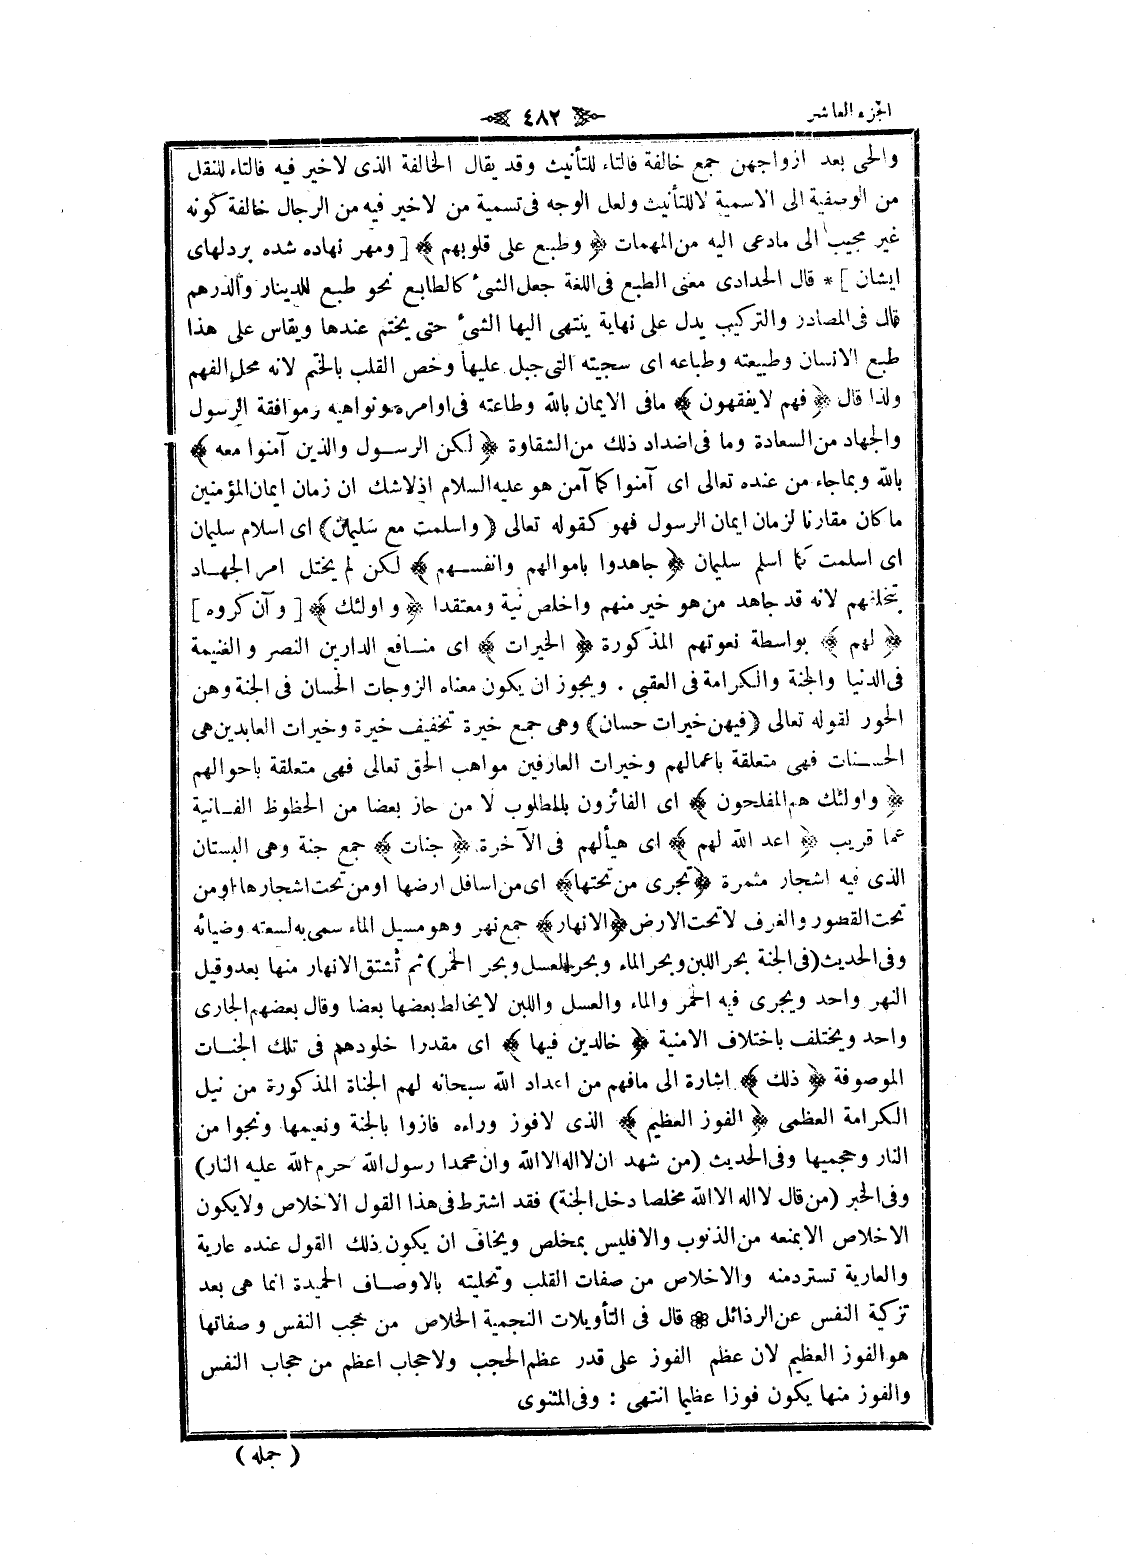 الجزء العاشر
٤٨٢
والحى بعد ازواجهن جمع خالفة فالتاء للتأنيث وقد يقال الخالفة الذى لاخير فيه فالتاء للنقل
من الوصفية الى الاسمية لاللتأنيث ولعل الوجه فى تسمية من لاخير فيه من الرجال خالفة كونه
غير مجيب الى مادعى اليه من المهمات ﴿ وطبع على قلوبهم ﴾ [ ومهر نهاده شده بردلهاى
ايشان ] * قال الحدادى معنى الطبع فى اللغة جعل الشئ كالطابع نحو طبع للدينار والدرهم
قال فى المصادر والتركيب يدل على نهاية ينتهى اليها الشئ حتى يختم عندها ويقاس على هذا
طبع الانسان وطبيعته وطباعه اى سجيته التى جبل عليها وخص القلب بالختم لانه محل الفهم
ولذا قال ﴿ فهم لايفقهون ﴾ مافى الايمان بالله وطاعته فى اوامره ونواهيه وموافقة الرسول
والجهاد من السعادة وما فى اضداد ذلك من الشقاوة ﴿ لكن الرسول والذين آمنوا معه ﴾
بالله وبماجاء من عنده تعالى اى آمنوا كما آمن هو عليه السلام اذلاشك ان زمان ايمان المؤمنين
ماكان مقارنا لزمان ايمان الرسول فهو كقوله تعالى ( واسلمت مع سليمان ) اى اسلام سليمان
اى اسلمت كما اسلم سليمان ﴿ جاهدوا باموالهم وانفسهم ﴾ لكن لم يختل امر الجهاد
بتخلفهم لانه قد جاهد من هو خير منهم واخلص نية ومعتقدا ﴿ واولئك ﴾ [ وآن كروه ]
﴿ لهم ﴾ بواسطة نعوتهم المذكورة ﴿ الخيرات ﴾ اى منافع الدارين النصر والغنيمة
فى الدنيا والجنة والكرامة فى العقبى . ويجوز ان يكون معناه الزوجات الحسان فى الجنة وهن
الحور لقوله تعالى ( فيهن خيرات حسان ) وهى جمع خيرة تخفيف خيرة وخيرات العابدين هى
الحسنات فهى متعلقة باعمالهم وخيرات العارفين مواهب الحق تعالى فهى متعلقة باحوالهم
﴿ واولئك هم المفلحون ﴾ اى الفائزون بالمطلوب لا من حاز بعضا من الحظوظ الفانية
عما قريب ﴿ اعد الله لهم ﴾ اى هيألهم فى الآخرة ﴿ جنات ﴾ جمع جنة وهى البستان
الذى فيه اشجار مثمرة ﴿ تجرى من تحتها ﴾ اى من اسافل ارضها اومن تحت اشجارها اومن
تحت القصور والغرف لاتحت الارض ﴿ الانهار ﴾ جمع نهر وهو مسيل الماء سمى به لسعته وضيائه
وفى الحديث ( فى الجنة بحر اللبن وبحر الماء وبحر للعسل وبحر الخمر ) ثم تشتق الانهار منها بعد وقيل
النهر واحد ويجرى فيه الخمر والماء والعسل واللبن لايخالط بعضها بعضا وقال بعضهم الجارى
واحد ويختلف باختلاف الامنية ﴿ خالدين فيها ﴾ اى مقدرا خلودهم فى تلك الجنات
الموصوفة ﴿ ذلك ﴾ اشارة الى مافهم من اعداد الله سبحانه لهم الجناة المذكورة من نيل
الكرامة العظمى ﴿ الفوز العظيم ﴾ الذى لافوز وراءه فازوا بالجنة ونعيمها ونجوا من
النار وجحيمها وفى الحديث ( من شهد ان لااله الاالله وان محمدا رسول الله حرم الله عليه النار )
وفى الخبر ( من قال لااله الاالله مخلصا دخل الجنة ) فقد اشترط فى هذا القول الاخلاص ولايكون
الاخلاص الابمنعه من الذنوب والافليس بمخلص ويخاف ان يكون ذلك القول عنده عارية
والعارية تسترد منه والاخلاص من صفات القلب وتحليته بالاوصاف الحميدة انما هى بعد
تزكية النفس عن الرذائل ❁ قال فى التأويلات النجمية الخلاص من حجب النفس وصفاتها
هو الفوز العظيم لان عظم الفوز على قدر عظم الحجب ولاحجاب اعظم من حجاب النفس
والفوز منها يكون فوزا عظيما انتهى : وفى المثنوى
( جمله )